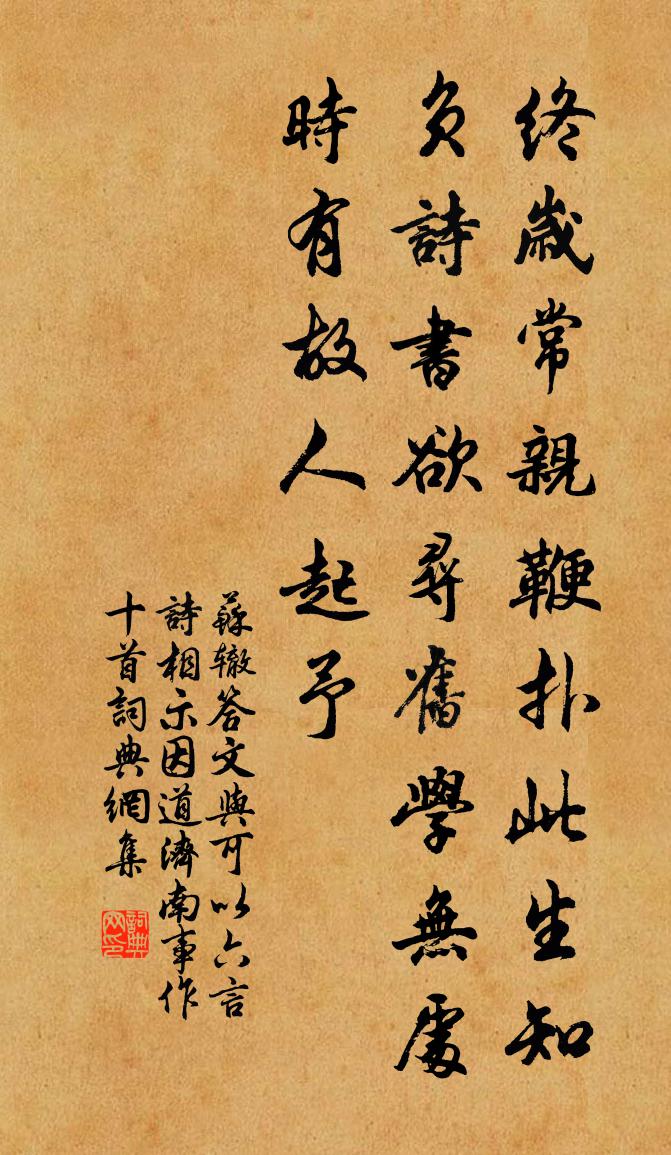 終歲常親鞭扑此生知
負詩書欲尋舊學無處
時有故人起予
蘇轍答文與可以六言
詩相示因道濟南事作
十首詞典網集
詞典
网印